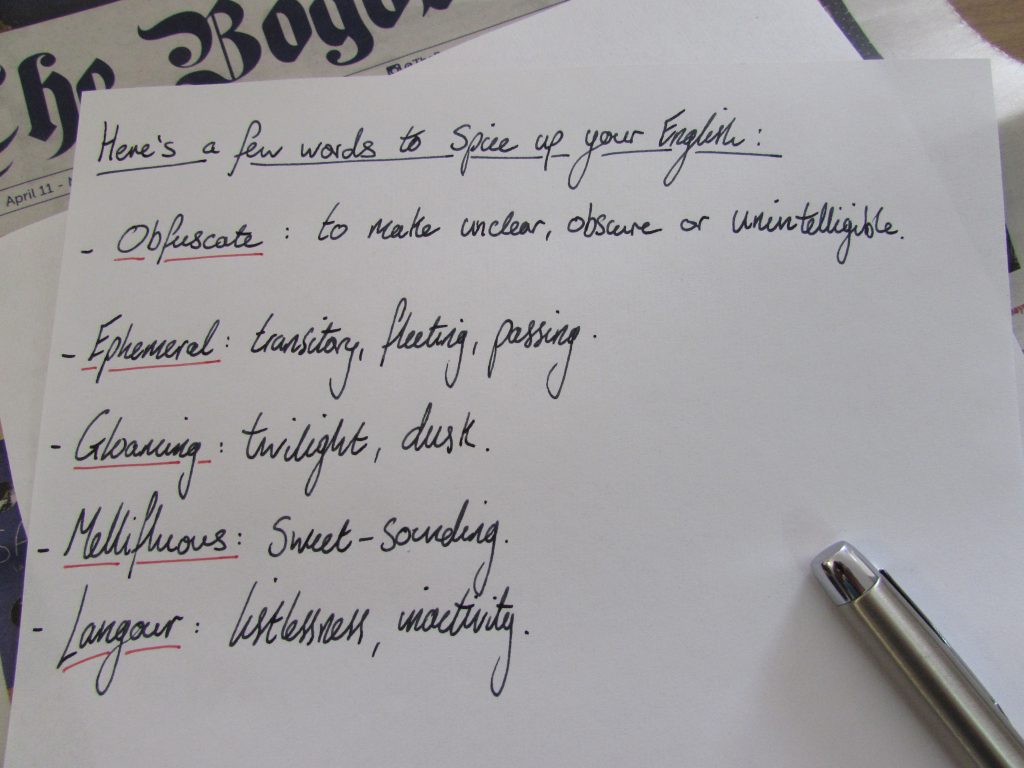 The Bogot
@The
April 11 -
Here's a few words to Spice up your English:
- Obfuscate : to make unclear, obscure or unintelligible.
- Ephemeral : transitory, fleeting, passing.
- Gloaming : twilight, dusk.
- Mellifluous : Sweet-sounding.
- Langour : listlessness, inactivity.